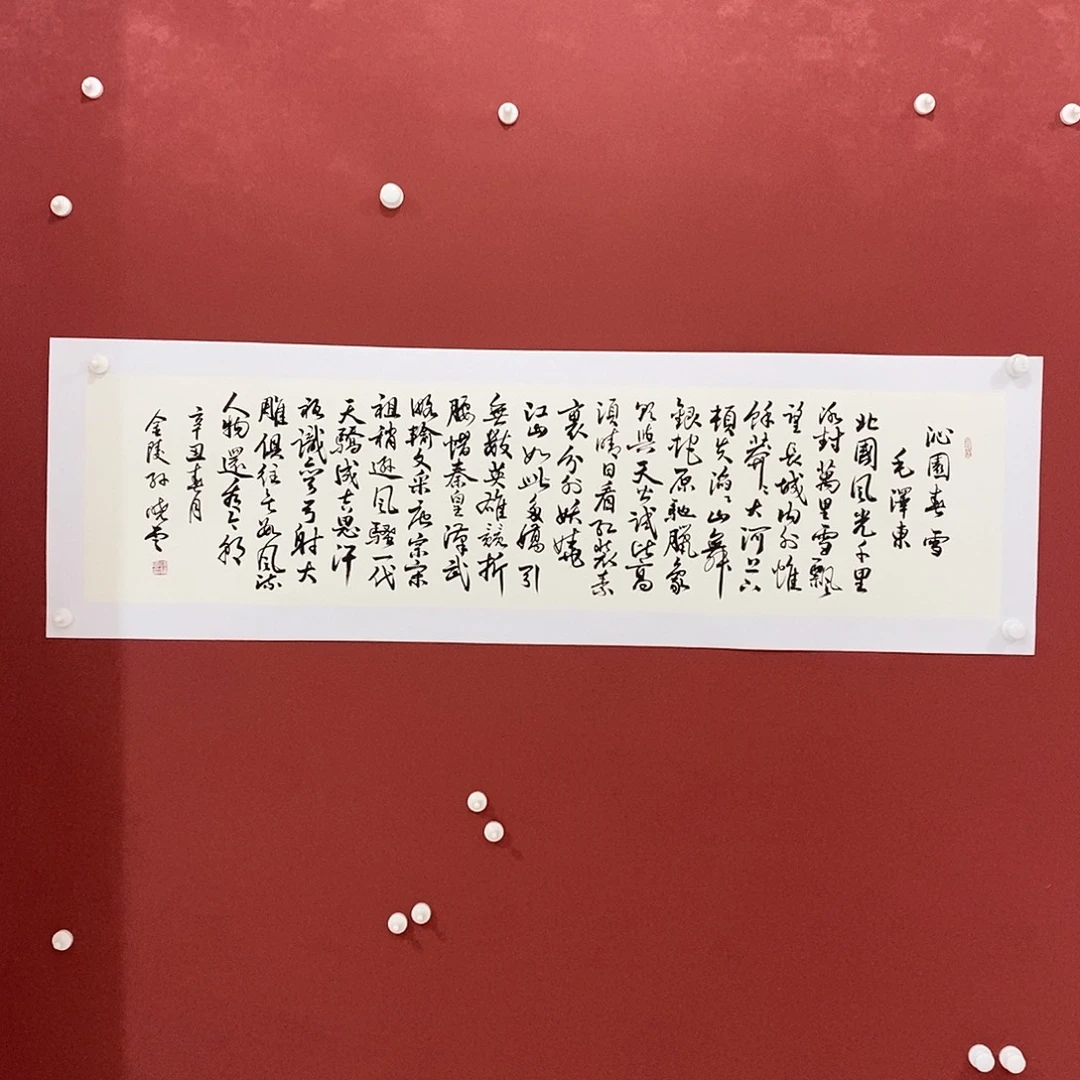 沁園春雪
毛澤東
北國風光千里
冰封萬里雪飄
望長城內外惟
餘莽々大河上下
頓失滔々山舞
銀蛇原馳臘象
欲與天公試比高
須晴日看紅裝素
裹分外妖嬈
江山如此多嬌引
無數英雄競折
腰惜秦皇漢武
略輸文采唐宗宋
祖稍遜風騷一代
天驕成吉思汗
祇識彎弓射大
雕俱往矣數風流
人物還看今朝
辛丑春月
金陵孫曉雲